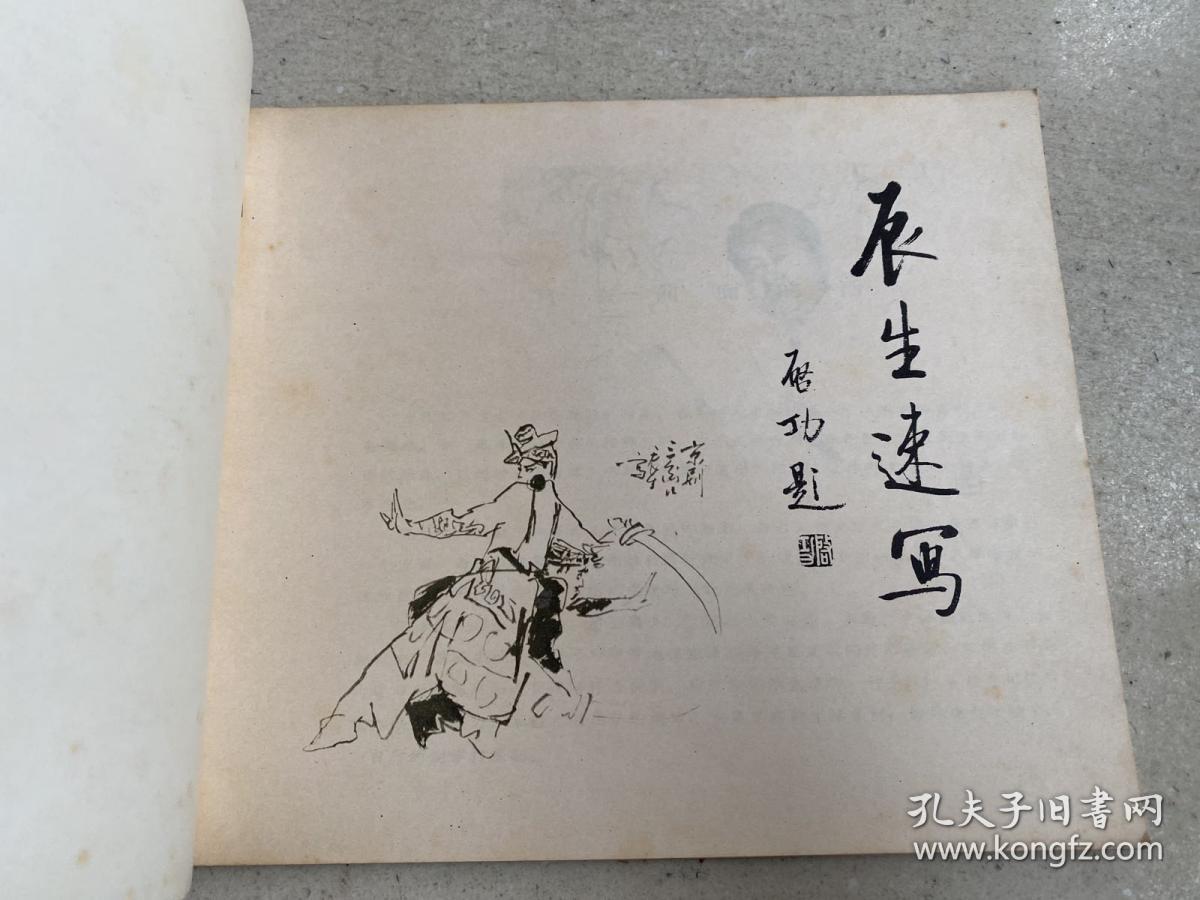 辰生速写
启功题
京剧
三岔口
孔夫子旧书网
www.kongfz.com